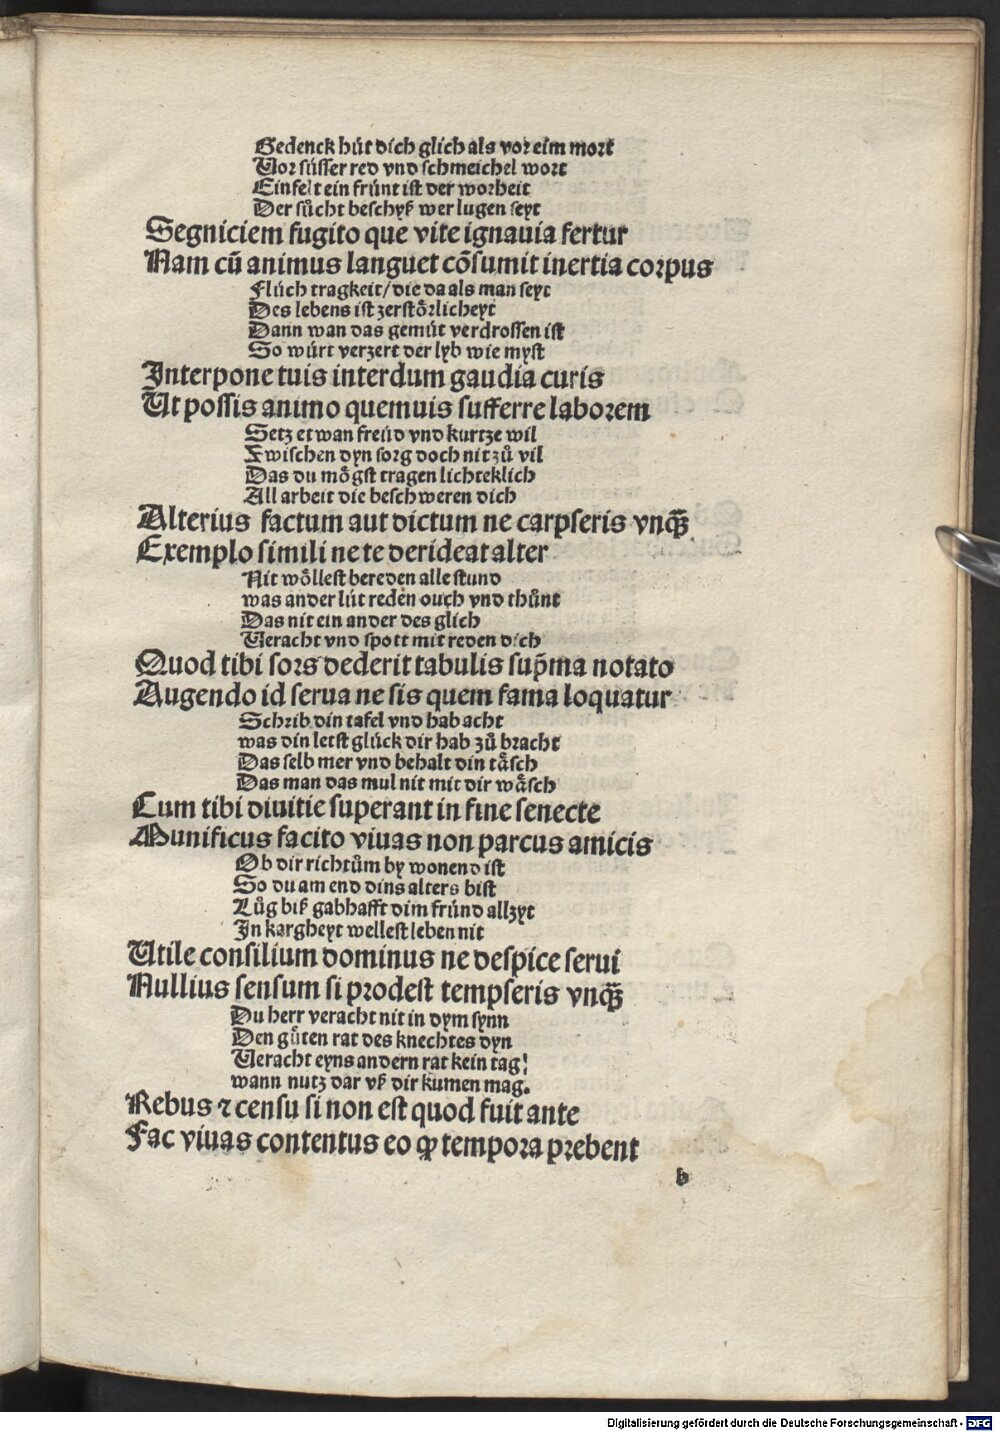 Gedenck hüt dich glich als vor eim mort
Vor süsser red vnd schmeichel wort
Einfelt ein frünt ist der worheit
Der sücht beschyß wer lugen seyt
Segniciem fugito que vite ignauia fertur
Nam cū animus languet cōsumit inertia corpus
Flüch tragkeit/die da als man seyt
Des lebens ist zerstörlicheyt
Dann wan das gemüt verdrossen ist
So würt verzert der lyb wie myst
Interpone tuis interdum gaudia curis
Ut possis animo quemuis sufferre laborem
Setz etwan freüd vnd kurtze wil
Zwischen dyn sorg doch nit zů vil
Das du mögst tragen lichteklich
All arbeit die beschweren dich
Alterius factum aut dictum ne carpseris vnqȝ̄
Exemplo simili ne te derideat alter
Nit wöllest bereden alle stund
was ander lüt reden ouch vnd thůnt
Das nit ein ander des glich
Veracht vnd spott mit reden dich
Quod tibi sors dederit tabulis sup̄ma notato
Augendo id serua ne sis quem fama loquatur
Schrib din tafel vnd hab acht
was din letst glück dir hab zů bracht
Das selb mer vnd behalt din täsch
Das man das mul nit mit dir wäsch
Cum tibi diuitie superant in fine senecte
Munificus facito viuas non parcus amicis
Ob dir richtům by wonend ist
So du am end dins alters bist
Lůg biß gabhafft dim fründ allzyt
In kargheyt wellest leben nit
Utile consilium dominus ne despice serui
Nullius sensum si prodest tempseris vnqȝ̄
Du herr veracht nit in dym synn
Den gůten rat des knechtes dyn
Veracht eyns andern rat kein tag!
wann nutz dar vß dir kumen mag.
Rebus ⁊ censu si non est quod fuit ante
Fac viuas contentus eo ꝙ tempora prebent
b
Digitalisierung gefördert durch die Deutsche Forschungsgemeinschaft - DFG